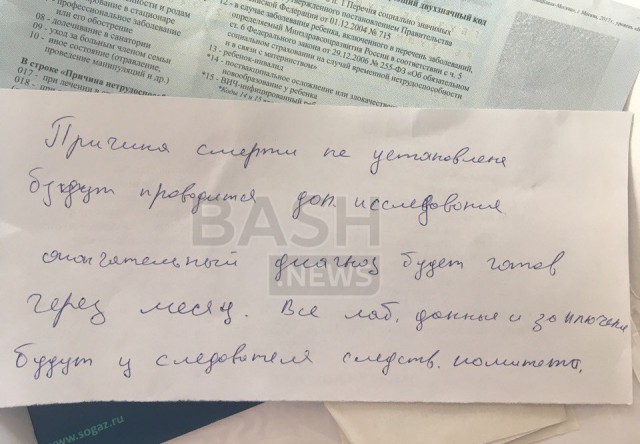 08 - долечивание в санатории
09 - уход за больным членом семьи
10 - иное состояние (отравление,
проведение манипуляций и др.)
В строке «Причина нетрудоспособ
017 - при лечении в
018 - при
1 Перечня социально значимых
Российской Федерации от 01.12.2004 № 715
12 - в случае заболевания ребенка, включенного в перечень заболеваний,
определяемый Минздравсоцразвития России в соответствии с ч. 5
ст. 6 Федерального закона от 29.12.2006 № 255-ФЗ «Об обязательном
социальном страховании на случай временной нетрудоспособности
и в связи с материнством»
13 - ребенок-инвалид
*14 - поствакцинальное осложнение или злокачественное
новообразование у ребенка
*15 - ВИЧ-инфицированный ребенок
Причина смерти не установлена
будут проводится доп. исследования
окончательный диагноз будет готов
через месяц. Все лаб. данные и заключения
будут у следователя следств. комитета.
BASH
NEWS
www.sogaz.ru